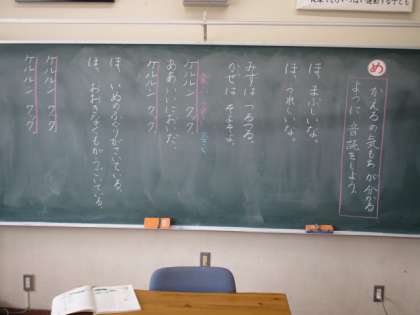 め
かえるの気もちが分かる
ように音読をしよう。
ほっ まぶしいな。
ほっ うれしいな。
みずは つるつる。
かぜは そよそよ。
ケルルン クック。
ああいいにおいだ。
ケルルン クック。
ほっ いぬのふぐりがさいている。
ほっ おおきなくもがうごいている。
ケルルン クック。
ケルルン クック。